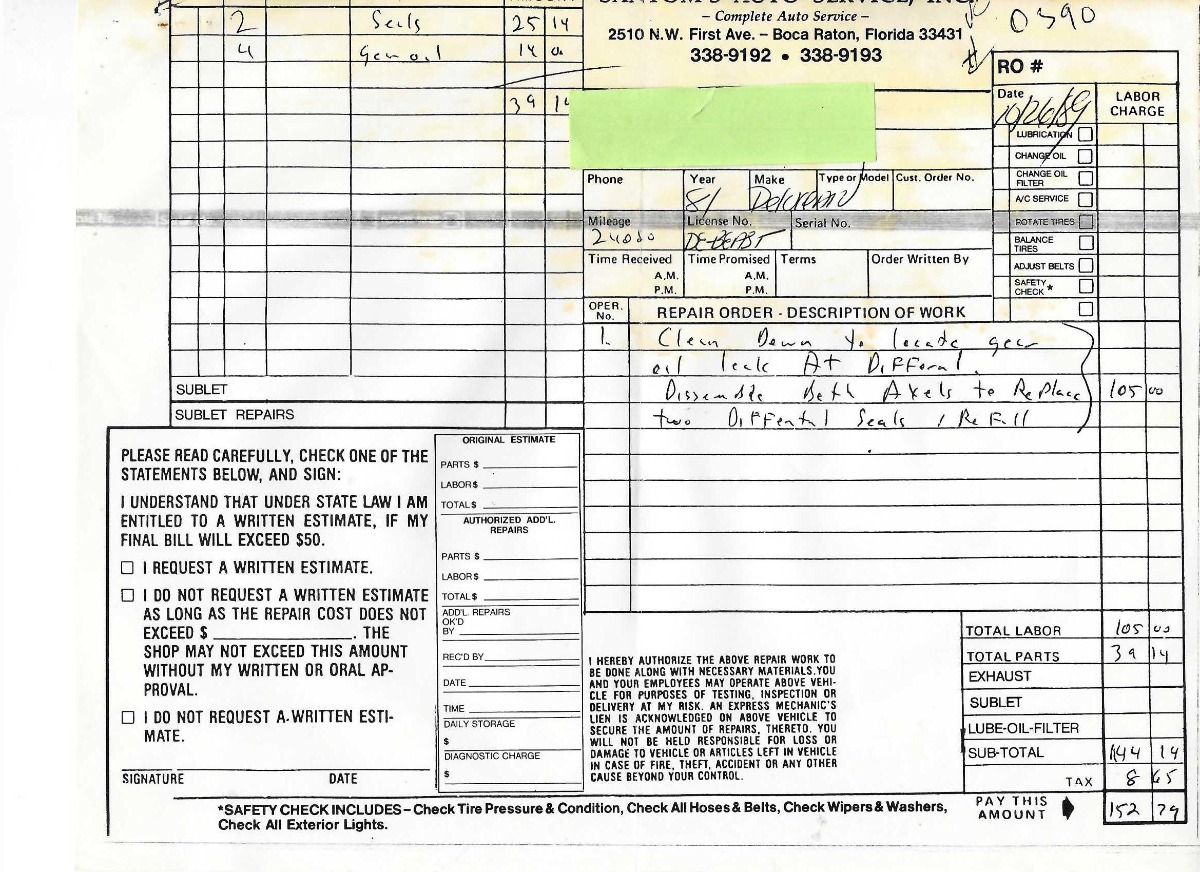 SANTOM'S AUTO SERVICE, INC.
– Complete Auto Service –
2510 N.W. First Ave. – Boca Raton, Florida 33431
338-9192 • 338-9193
0390
2 Seals 25 14
4 Gear oil 14 00
39 14
RO #
Date 10/26/89
LABOR CHARGE
LUBRICATION
CHANGE OIL
CHANGE OIL FILTER
A/C SERVICE
ROTATE TIRES
BALANCE TIRES
ADJUST BELTS
SAFETY CHECK *
Phone Year 81 Make Delorean Type or Model Cust. Order No.
Mileage License No. DE-BEAST Serial No.
Time Received A.M. P.M. Time Promised A.M. P.M. Terms Order Written By
OPER. No. REPAIR ORDER - DESCRIPTION OF WORK
1. Clean Down To locate gear
oil leak At Differnal.
Dissemble Both Axels to Replace 105 00
two Differntal Seals / Refill
SUBLET
SUBLET REPAIRS
PLEASE READ CAREFULLY, CHECK ONE OF THE
STATEMENTS BELOW, AND SIGN:
I UNDERSTAND THAT UNDER STATE LAW I AM
ENTITLED TO A WRITTEN ESTIMATE, IF MY
FINAL BILL WILL EXCEED $50.
I REQUEST A WRITTEN ESTIMATE.
I DO NOT REQUEST A WRITTEN ESTIMATE
AS LONG AS THE REPAIR COST DOES NOT
EXCEED $ . THE
SHOP MAY NOT EXCEED THIS AMOUNT
WITHOUT MY WRITTEN OR ORAL AP-
PROVAL.
I DO NOT REQUEST A WRITTEN ESTI-
MATE.
SIGNATURE DATE
ORIGINAL ESTIMATE
PARTS $
LABOR $
TOTAL $
AUTHORIZED ADD'L.
REPAIRS
PARTS $
LABOR $
TOTAL $
ADD'L. REPAIRS
OK'D
BY
REC'D BY
DATE
TIME
DAILY STORAGE
$
DIAGNOSTIC CHARGE
$
I HEREBY AUTHORIZE THE ABOVE REPAIR WORK TO
BE DONE ALONG WITH NECESSARY MATERIALS. YOU
AND YOUR EMPLOYEES MAY OPERATE ABOVE VEHI-
CLE FOR PURPOSES OF TESTING, INSPECTION OR
DELIVERY AT MY RISK. AN EXPRESS MECHANIC'S
LIEN IS ACKNOWLEDGED ON ABOVE VEHICLE TO
SECURE THE AMOUNT OF REPAIRS, THERETO. YOU
WILL NOT BE HELD RESPONSIBLE FOR LOSS OR
DAMAGE TO VEHICLE OR ARTICLES LEFT IN VEHICLE
IN CASE OF FIRE, THEFT, ACCIDENT OR ANY OTHER
CAUSE BEYOND YOUR CONTROL.
TOTAL LABOR 105 00
TOTAL PARTS 39 14
EXHAUST
SUBLET
LUBE-OIL-FILTER
SUB-TOTAL 144 14
TAX 8 65
PAY THIS AMOUNT 152 79
*SAFETY CHECK INCLUDES – Check Tire Pressure & Condition, Check All Hoses & Belts, Check Wipers & Washers,
Check All Exterior Lights.